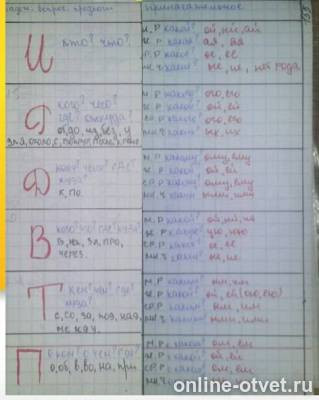 Прилагательное
И
кто? что?
м.р какой? ой, ий, ый
ж.р какая? ая, яя
ср.р какое? ое, ее
мн.ч какие? ые, ие
Р
кого? чего?
где? откуда?
от, до, из, без, у
для, около, с, вокруг, после, кроме
м.р какого? ого, его
ж.р какой? ой, ей
ср.р какого? ого, его
мн.ч каких? ых, их
Д
кому? чему? где?
куда?
к, по.
м.р какому? ому, ему
ж.р какой? ой, ей
ср.р какому? ому, ему
мн.ч каким? ым, им
В
кого? что? где? куда?
в, на, за, про,
через.
м.р какой? ой, ий, ый
ж.р какую? ую, юю
ср.р какое? ое, ее
мн.ч какие? ые, ие
Т
кем? чем? где?
куда?
с, со, за, под, над,
между.
м.р каким? ым, им
ж.р какой? ой, ей (ою, ею)
ср.р каким? ым, им
мн.ч какими? ыми, ими
П
о ком? о чем? где?
о, об, в, во, на, при.
м.р каком? ом, ем
ж.р какой? ой, ей
ср.р каком? ом, ем
мн.ч каких?
online-otvet.ru